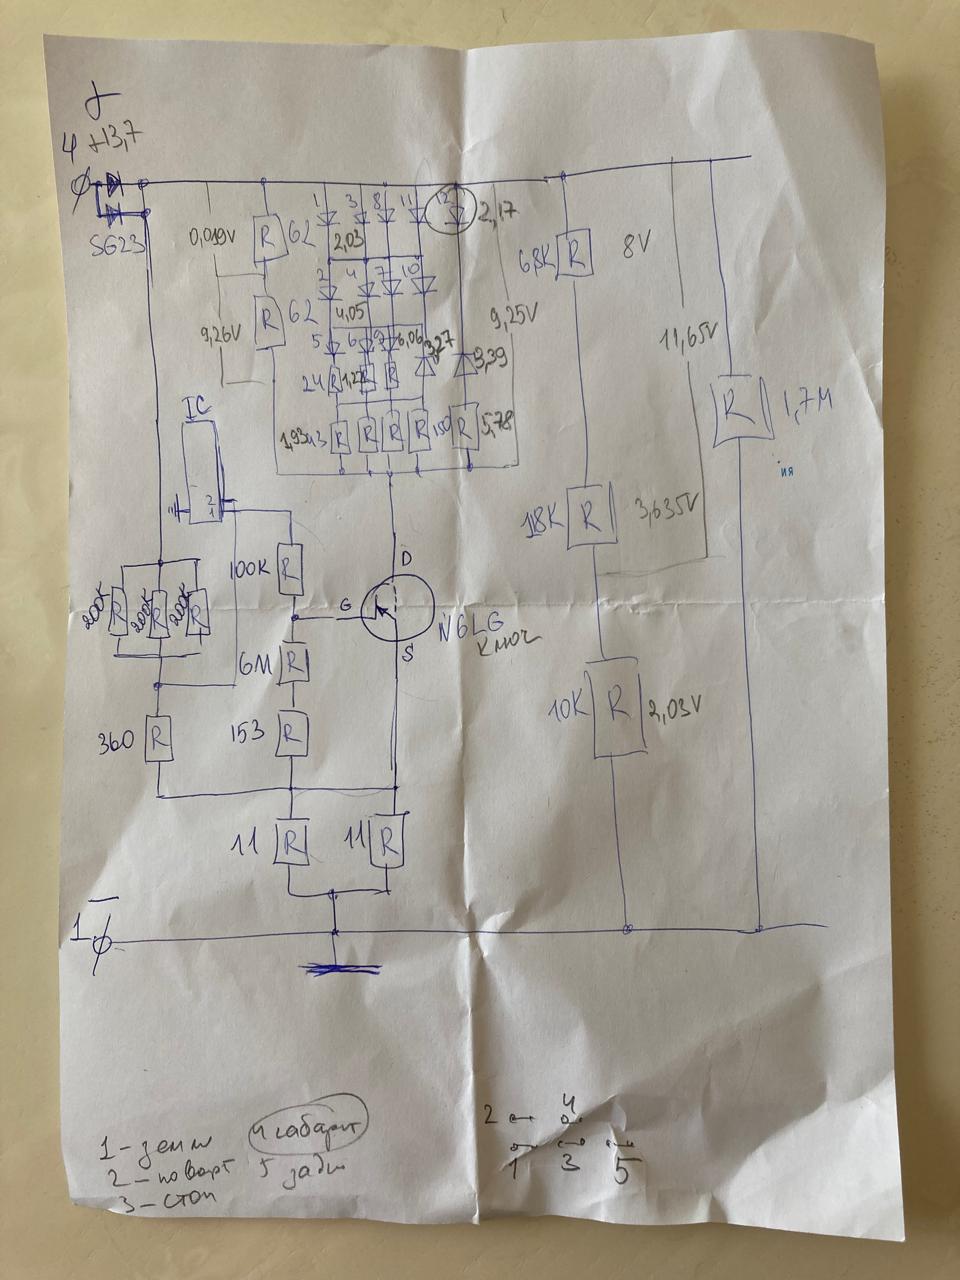 4 +13,7
SG23
0,019V
R 62
1 3 8 11 12
2,17
2,03
2 4 7 10
R 62
4,05
9,26V
5 6 9 6,06 3,27
3,39
9,25V
24 R 1,22 R R
1,93 43 R R R R 150 R 5,78
68K R 8V
11,65V
R 1,7M
ия
18K R 3,635V
10K R 2,03V
IC
2
1
100K R
200K R 200K R 200K R
G D S
N6LG
ключ
6M R
360 R
153 R
11 R
11 R
1 −
1 - земля
2 - поворт
3 - стоп
4 габарит
5 задн
2 4
1 3 5